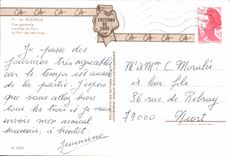 17 - LA ROCHELLE
Vue générale
L'entrée du Port
Le Port des Minimes
EDITIONS
DE
LUXE
Je passe des
journées très agréables
car le temps est aussi
de la partie. J'espère
que vous allez bien
tous les trois et je vous
envoie mon amical
souvenir, à bientôt.
Jeannine
M et Mme C. Moralès
et leur fils
36 rue de
79000 Niort